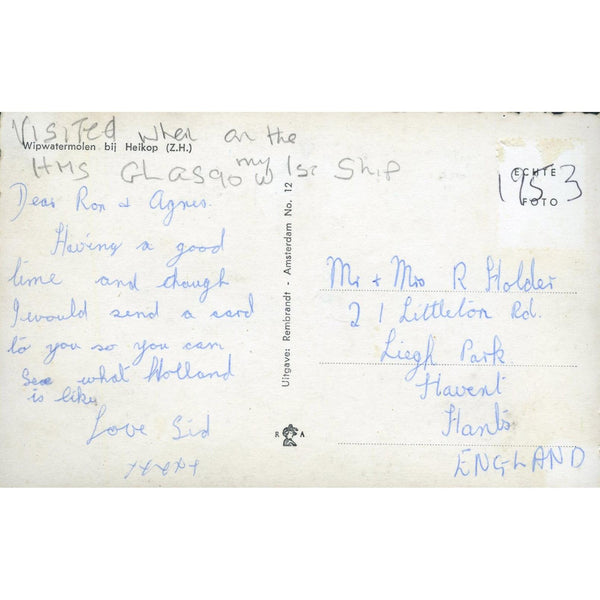 VISITED when on the
Wipwatermolen bij Heikop (Z.H.)
HMS GLASGOW my 1st Ship
Dear Ron & Agnes.
Having a good
time and though
I would send a card
to you so you can
See what Holland
is like
Love Sid
xxxxx
Uitgave: Rembrandt - Amsterdam No. 12
R A
ECHTE
1953
FOTO
Mr + Mrs R Holder
21 Littleton Rd.
Liegh Park
Havent
Hants
ENGLAND